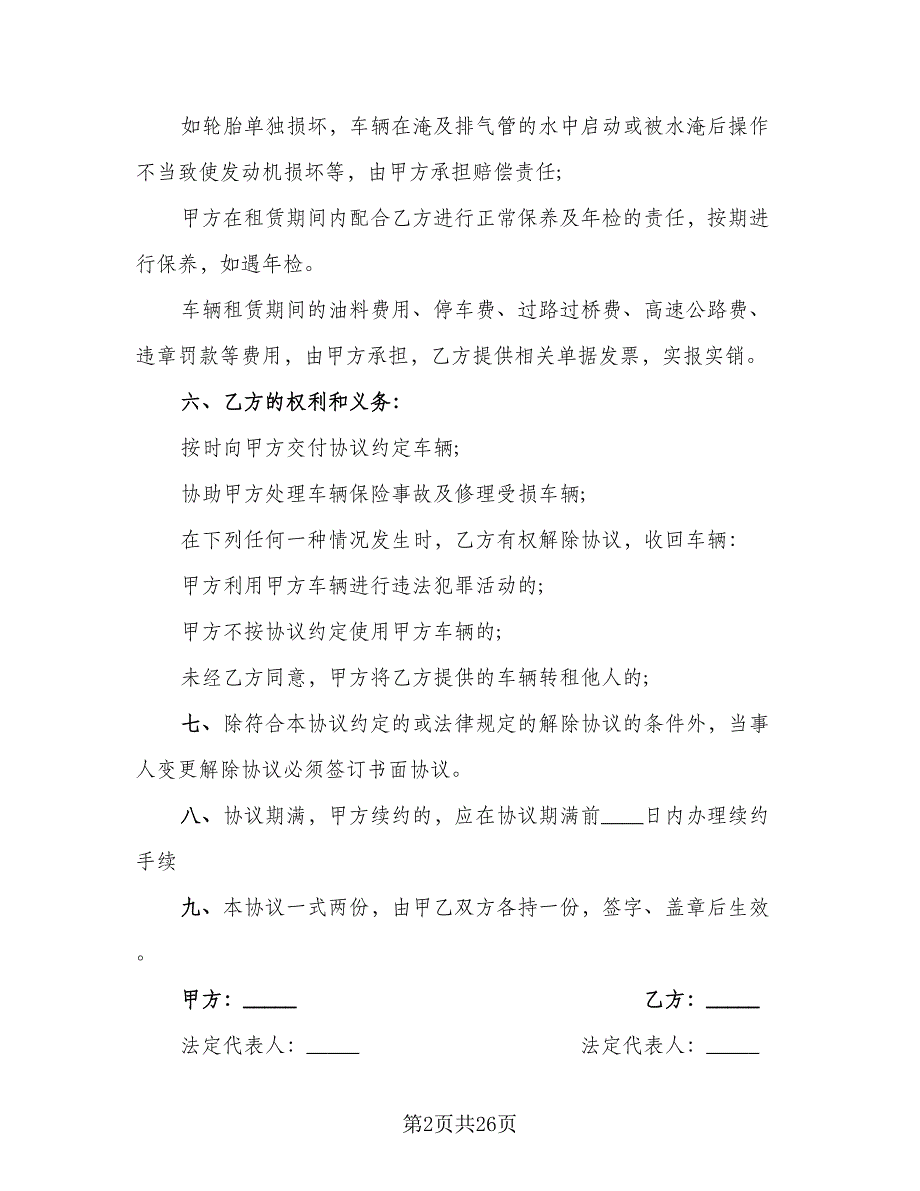 如轮胎单独损坏，车辆在淹及排气管的水中启动或被水淹后操作
不当致使发动机损坏等，由甲方承担赔偿责任;
甲方在租赁期间内配合乙方进行正常保养及年检的责任，按期进
行保养，如遇年检。
车辆租赁期间的油料费用、停车费、过路过桥费、高速公路费、
违章罚款等费用，由甲方承担，乙方提供相关单据发票，实报实销。
六、乙方的权利和义务：
按时向甲方交付协议约定车辆;
协助甲方处理车辆保险事故及修理受损车辆;
在下列任何一种情况发生时，乙方有权解除协议，收回车辆：
甲方利用甲方车辆进行违法犯罪活动的;
甲方不按协议约定使用甲方车辆的;
未经乙方同意，甲方将乙方提供的车辆转租他人的;
七、除符合本协议约定的或法律规定的解除协议的条件外，当事
人变更解除协议必须签订书面协议。
八、协议期满，甲方续约的，应在协议期满前____日内办理续约
手续
九、本协议一式两份，由甲乙双方各持一份，签字、盖章后生效
。
甲方：_____ 乙方：_____
法定代表人：_____ 法定代表人：_____
第2页共26页